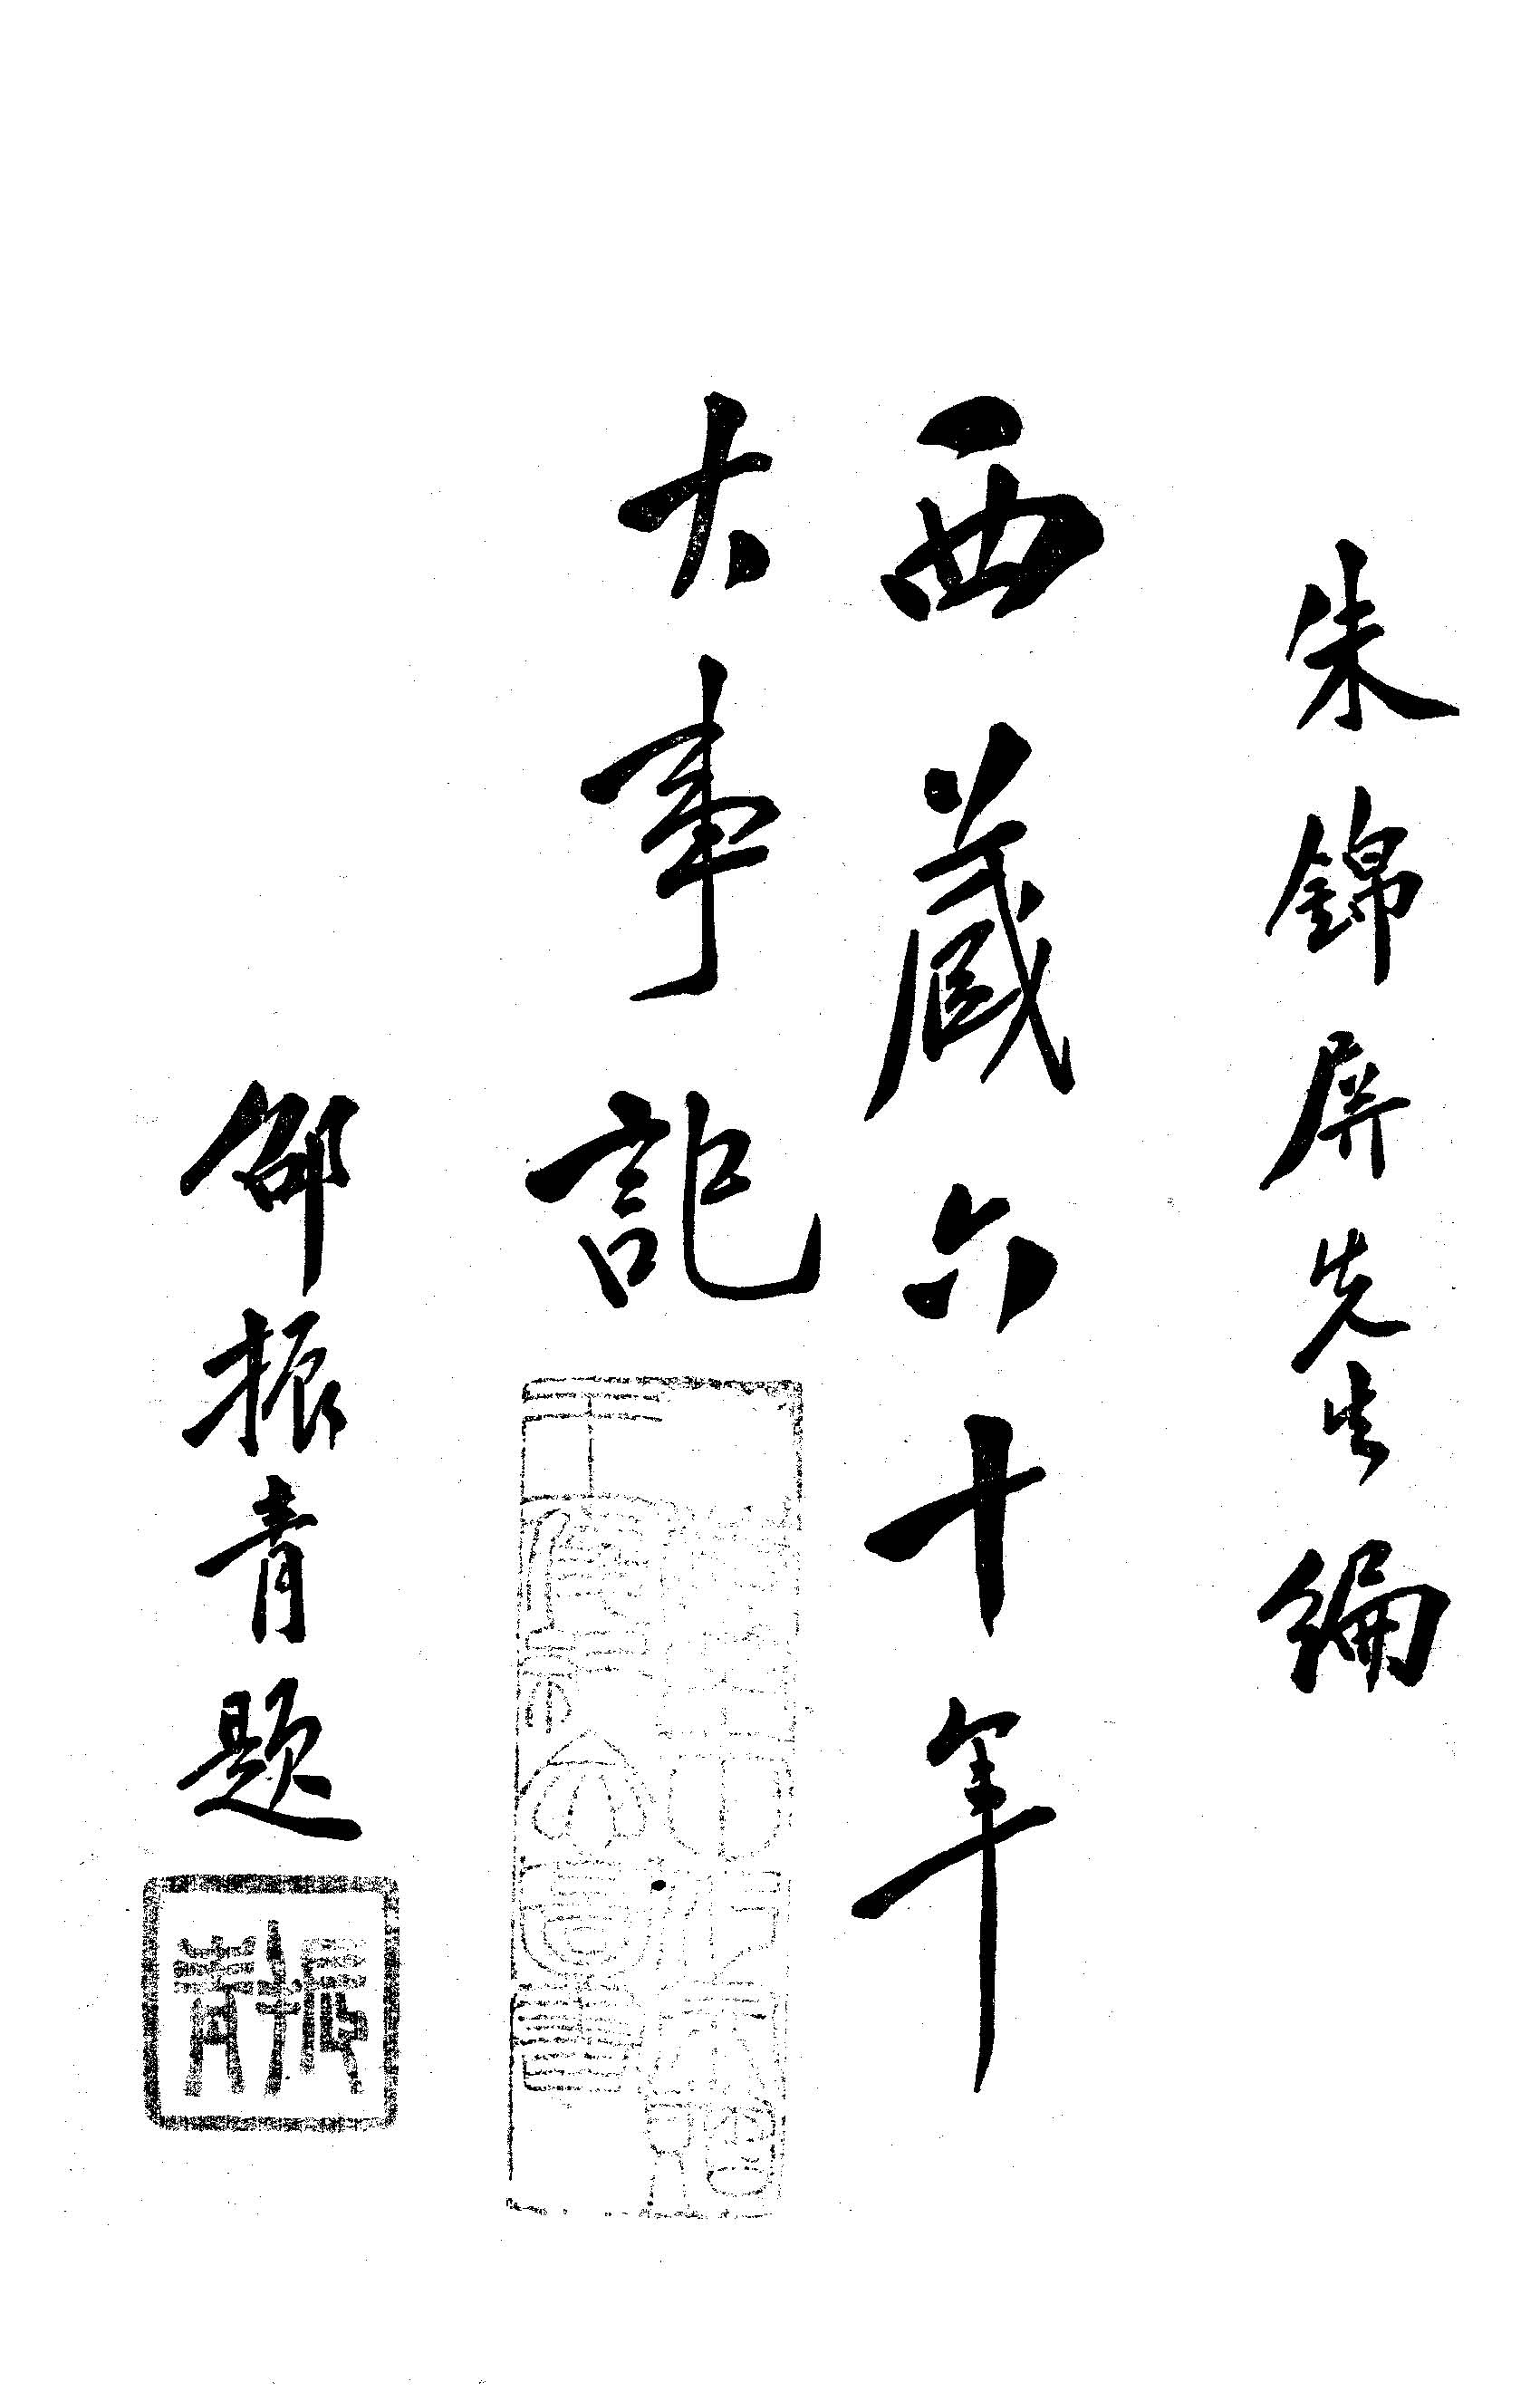 朱錦屏先生編
西藏六十年
大事記
邵振青題
振青